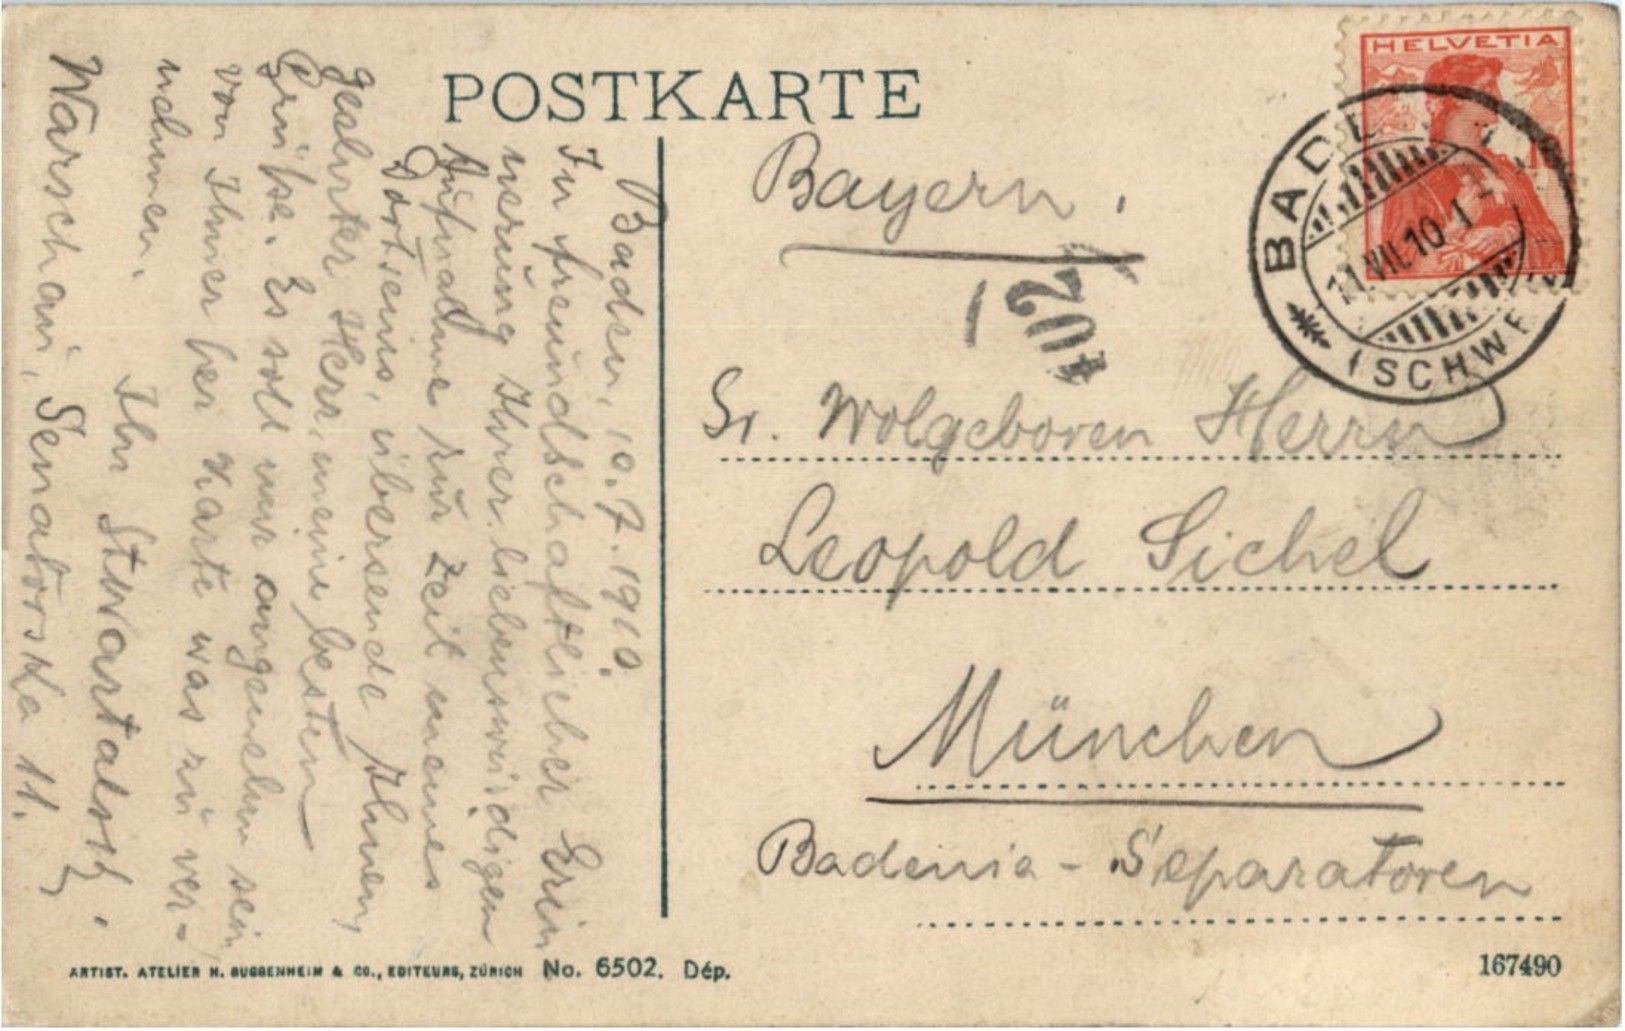 POSTKARTE
HELVETIA
BADEN
11.VII.10-1
(SCHWEIZ)
Baden, 10.7.1910.
In freundschaftlicher Erin
nerung Ihrer liebenswürdigen
Aufnahme zur Zeit meines
Dortseins, übersende Ihnen,
geehrter Herr, meine besten
Grüße. Es soll mir angenehm sein
von Ihnen per Karte was zu ver-
nehmen.
Ihr
Warschau, Senatorska 11.
Bayern.
1
204
Sr. Wolgeboren Herrn
Leopold Sichel
München
Badenia - Separatoren
ARTIST. ATELIER H. GUGGENHEIM & CO., EDITEURS, ZÜRICH No. 6502. Dép.
167490